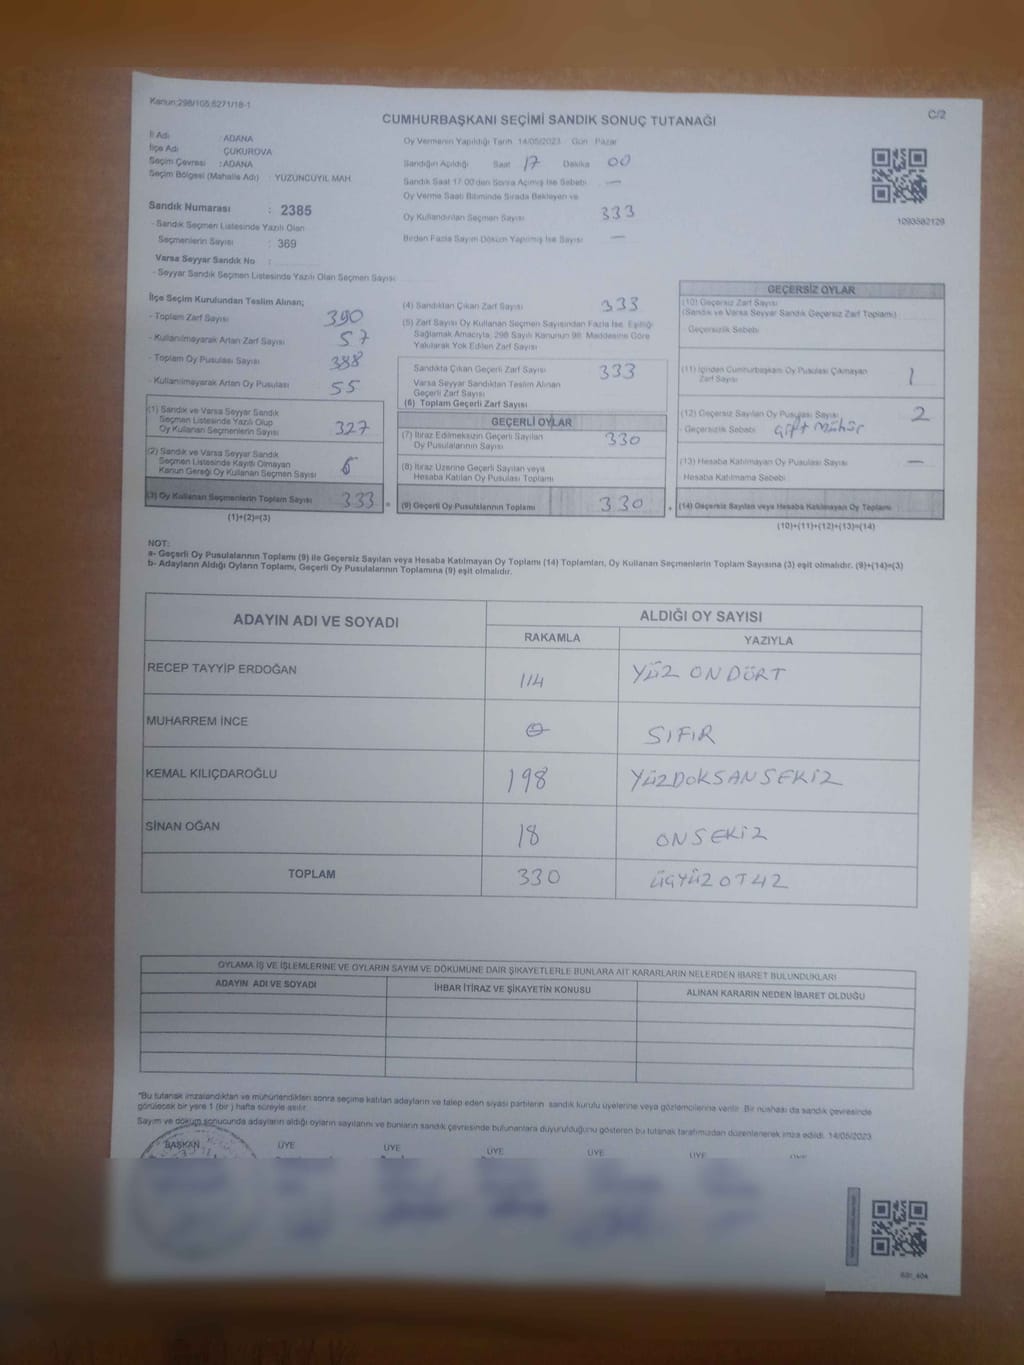 Kanun:298/105;6271/18-1
C/2
CUMHURBAŞKANI SEÇİMİ SANDIK SONUÇ TUTANAĞI
İl Adı : ADANA
İlçe Adı : ÇUKUROVA
Seçim Çevresi : ADANA
Seçim Bölgesi (Mahalle Adı) : YÜZÜNCÜYIL MAH.
Sandık Numarası : 2385
- Sandık Seçmen Listesinde Yazılı Olan
Seçmenlerin Sayısı : 369
Varsa Seyyar Sandık No :
- Seyyar Sandık Seçmen Listesinde Yazılı Olan Seçmen Sayısı
Oy Vermenin Yapıldığı Tarih 14/05/2023 Gün Pazar
Sandığın Açıldığı Saat 17 Dakika 00
Sandık Saat 17:00'den Sonra Açılmış İse Sebebi —
Oy Verme Saati Bitiminde Sırada Bekleyen ve
Oy Kullandırılan Seçmen Sayısı 333
Birden Fazla Sayım Döküm Yapılmış İse Sayısı —
1093582129
İlçe Seçim Kurulundan Teslim Alınan;
- Toplam Zarf Sayısı 390
- Kullanılmayarak Artan Zarf Sayısı 57
- Toplam Oy Pusulası Sayısı 388
- Kullanılmayarak Artan Oy Pusulası 55
(1) Sandık ve Varsa Seyyar Sandık
Seçmen Listesinde Yazılı Olup
Oy Kullanan Seçmenlerin Sayısı 327
(2) Sandık ve Varsa Seyyar Sandık
Seçmen Listesinde Kayıtlı Olmayan
Kanun Gereği Oy Kullanan Seçmen Sayısı 6
(3) Oy Kullanan Seçmenlerin Toplam Sayısı 333 =
(1)+(2)=(3)
(4) Sandıktan Çıkan Zarf Sayısı 333
(5) Zarf Sayısı Oy Kullanan Seçmen Sayısından Fazla İse, Eşitliği
Sağlamak Amacıyla, 298 Sayılı Kanunun 98. Maddesine Göre
Yakılarak Yok Edilen Zarf Sayısı
Sandıkta Çıkan Geçerli Zarf Sayısı 333
Varsa Seyyar Sandıktan Teslim Alınan
Geçerli Zarf Sayısı
(6) Toplam Geçerli Zarf Sayısı
GEÇERLİ OYLAR
(7) İtiraz Edilmeksizin Geçerli Sayılan
Oy Pusulalarının Sayısı 330
(8) İtiraz Üzerine Geçerli Sayılan veya
Hesaba Katılan Oy Pusulası Toplamı
(9) Geçerli Oy Pusulalarının Toplamı 330 +
GEÇERSİZ OYLAR
(10) Geçersiz Zarf Sayısı
(Sandık ve Varsa Seyyar Sandık Geçersiz Zarf Toplamı)
Geçersizlik Sebebi
(11) İçinden Cumhurbaşkanı Oy Pusulası Çıkmayan
Zarf Sayısı 1
(12) Geçersiz Sayılan Oy Pusulası Sayısı 2
- Geçersizlik Sebebi Çift Mühür
(13) Hesaba Katılmayan Oy Pusulası Sayısı —
Hesaba Katılmama Sebebi
(14) Geçersiz Sayılan veya Hesaba Katılmayan Oy Toplamı
(10)+(11)+(12)+(13)=(14)
NOT:
a- Geçerli Oy Pusulalarının Toplamı (9) ile Geçersiz Sayılan veya Hesaba Katılmayan Oy Toplamı (14) Toplamları, Oy Kullanan Seçmenlerin Toplam Sayısına (3) eşit olmalıdır. (9)+(14)=(3)
b- Adayların Aldığı Oyların Toplamı, Geçerli Oy Pusulalarının Toplamına (9) eşit olmalıdır.
ADAYIN ADI VE SOYADI ALDIĞI OY SAYISI
RAKAMLA YAZIYLA
RECEP TAYYİP ERDOĞAN 114 YÜZ ONDÖRT
MUHARREM İNCE 0 SIFIR
KEMAL KILIÇDAROĞLU 198 YÜZDOKSANSEKİZ
SİNAN OĞAN 18 ONSEKİZ
TOPLAM 330 ÜÇYÜZ OTUZ
OYLAMA İŞ VE İŞLEMLERİNE VE OYLARIN SAYIM VE DÖKÜMÜNE DAİR ŞİKAYETLERLE BUNLARA AİT KARARLARIN NELERDEN İBARET BULUNDUKLARI
ADAYIN ADI VE SOYADI İHBAR İTİRAZ VE ŞİKAYETİN KONUSU ALINAN KARARIN NEDEN İBARET OLDUĞU
*Bu tutanak imzalandıktan ve mühürlendikten sonra seçime katılan adayların ve talep eden siyasi partilerin sandık kurulu üyelerine veya gözlemcilerine verilir. Bir nüshası da sandık çevresinde
görülecek bir yere 1 (bir) hafta süreyle asılır.
Sayım ve döküm sonucunda adayların aldığı oyların sayılarını ve bunların sandık çevresinde bulunanlara duyurulduğunu gösteren bu tutanak tarafımızdan düzenlenerek imza edildi. 14/05/2023
BAŞKAN ÜYE ÜYE ÜYE ÜYE ÜYE ÜYE